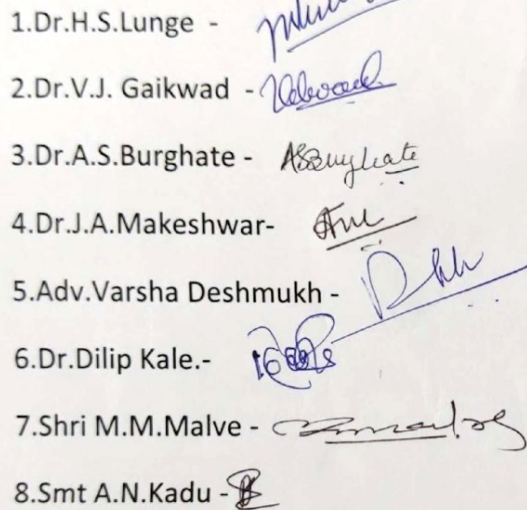 1.Dr.H.S.Lunge -
2.Dr.V.J. Gaikwad -
3.Dr.A.S.Burghate - ASBurghate
4.Dr.J.A.Makeshwar-
5.Adv.Varsha Deshmukh -
6.Dr.Dilip Kale.-
7.Shri M.M.Malve -
8.Smt A.N.Kadu -